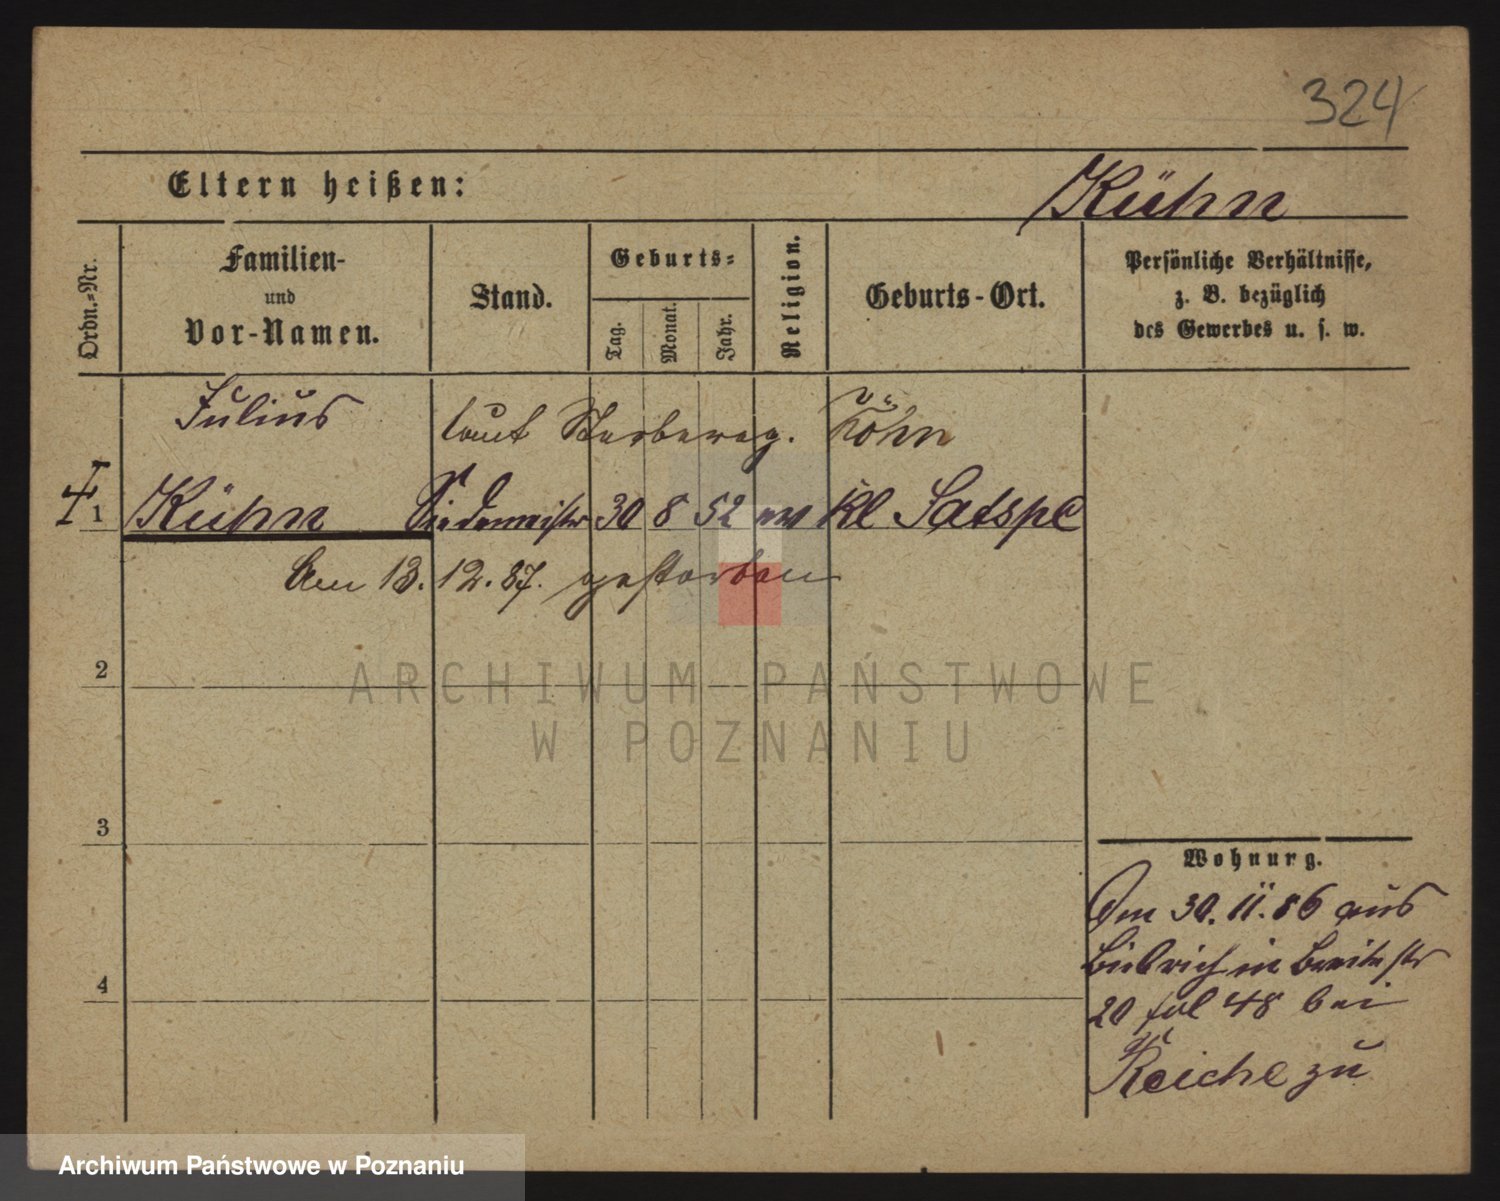 324
Eltern heißen:
Kühn
Ordn.-Nr.
Familien-
und
Vor-Namen.
Stand.
Geburts-
Tag.
Monat.
Jahr.
Religion.
Geburts-Ort.
Persönliche Verhältnisse,
z. B. bezüglich
des Gewerbes u. s. w.
Julius laut Sterbereg. Köhn
1 Kühn Siedemeister 30 8 52 ev Kl Satspe
Am 13. 12. 87. gestorben
2
ARCHIWUM PAŃSTWOWE
W POZNANIU
3
4
Wohnung.
Am 30. 11. 86 aus
Biebrich in Breitestr
20 fol 48 bei
Reiche zu
Archiwum Państwowe w Poznaniu